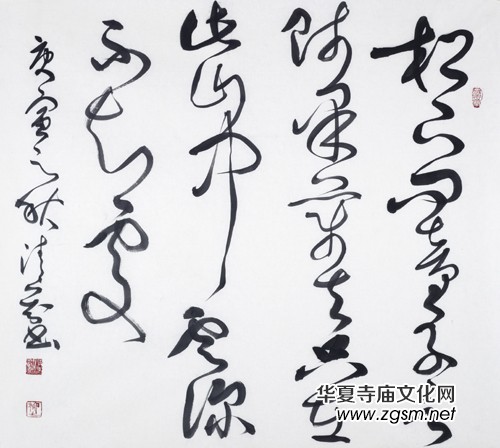 松下問童子言
師采藥去只在
此山中雲深
不知處
庚寅之秋清書
华夏寺庙文化网
www.zgsm.net